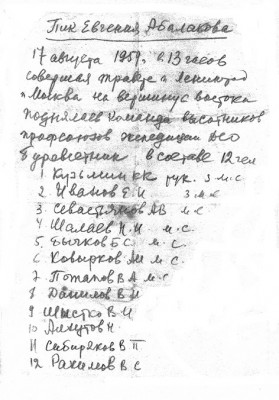 Пик Евгения Абалакова
17 августа 1959г. в 13 часов
совершая траверс п Ленинград
п Москва на вершину с востока
поднялась команда высотников
профсоюзов экспедиции ДСО
Буревестник в составе 12 чел
1 Кузьмин КК рук. з м с
2. Иванов Е.И. з м с
3. Севастьянов АВ м с
4 Шалаев Н.И. м.с.
5. Бычков Б С м.с.
6 Ковырков АИ м.с.
7 Потапов В А м-с
8 Данилов В И
9 Шыстко В-И
10 Алхутов Н.
11 Сибиряков В П
12 Рахимов В С